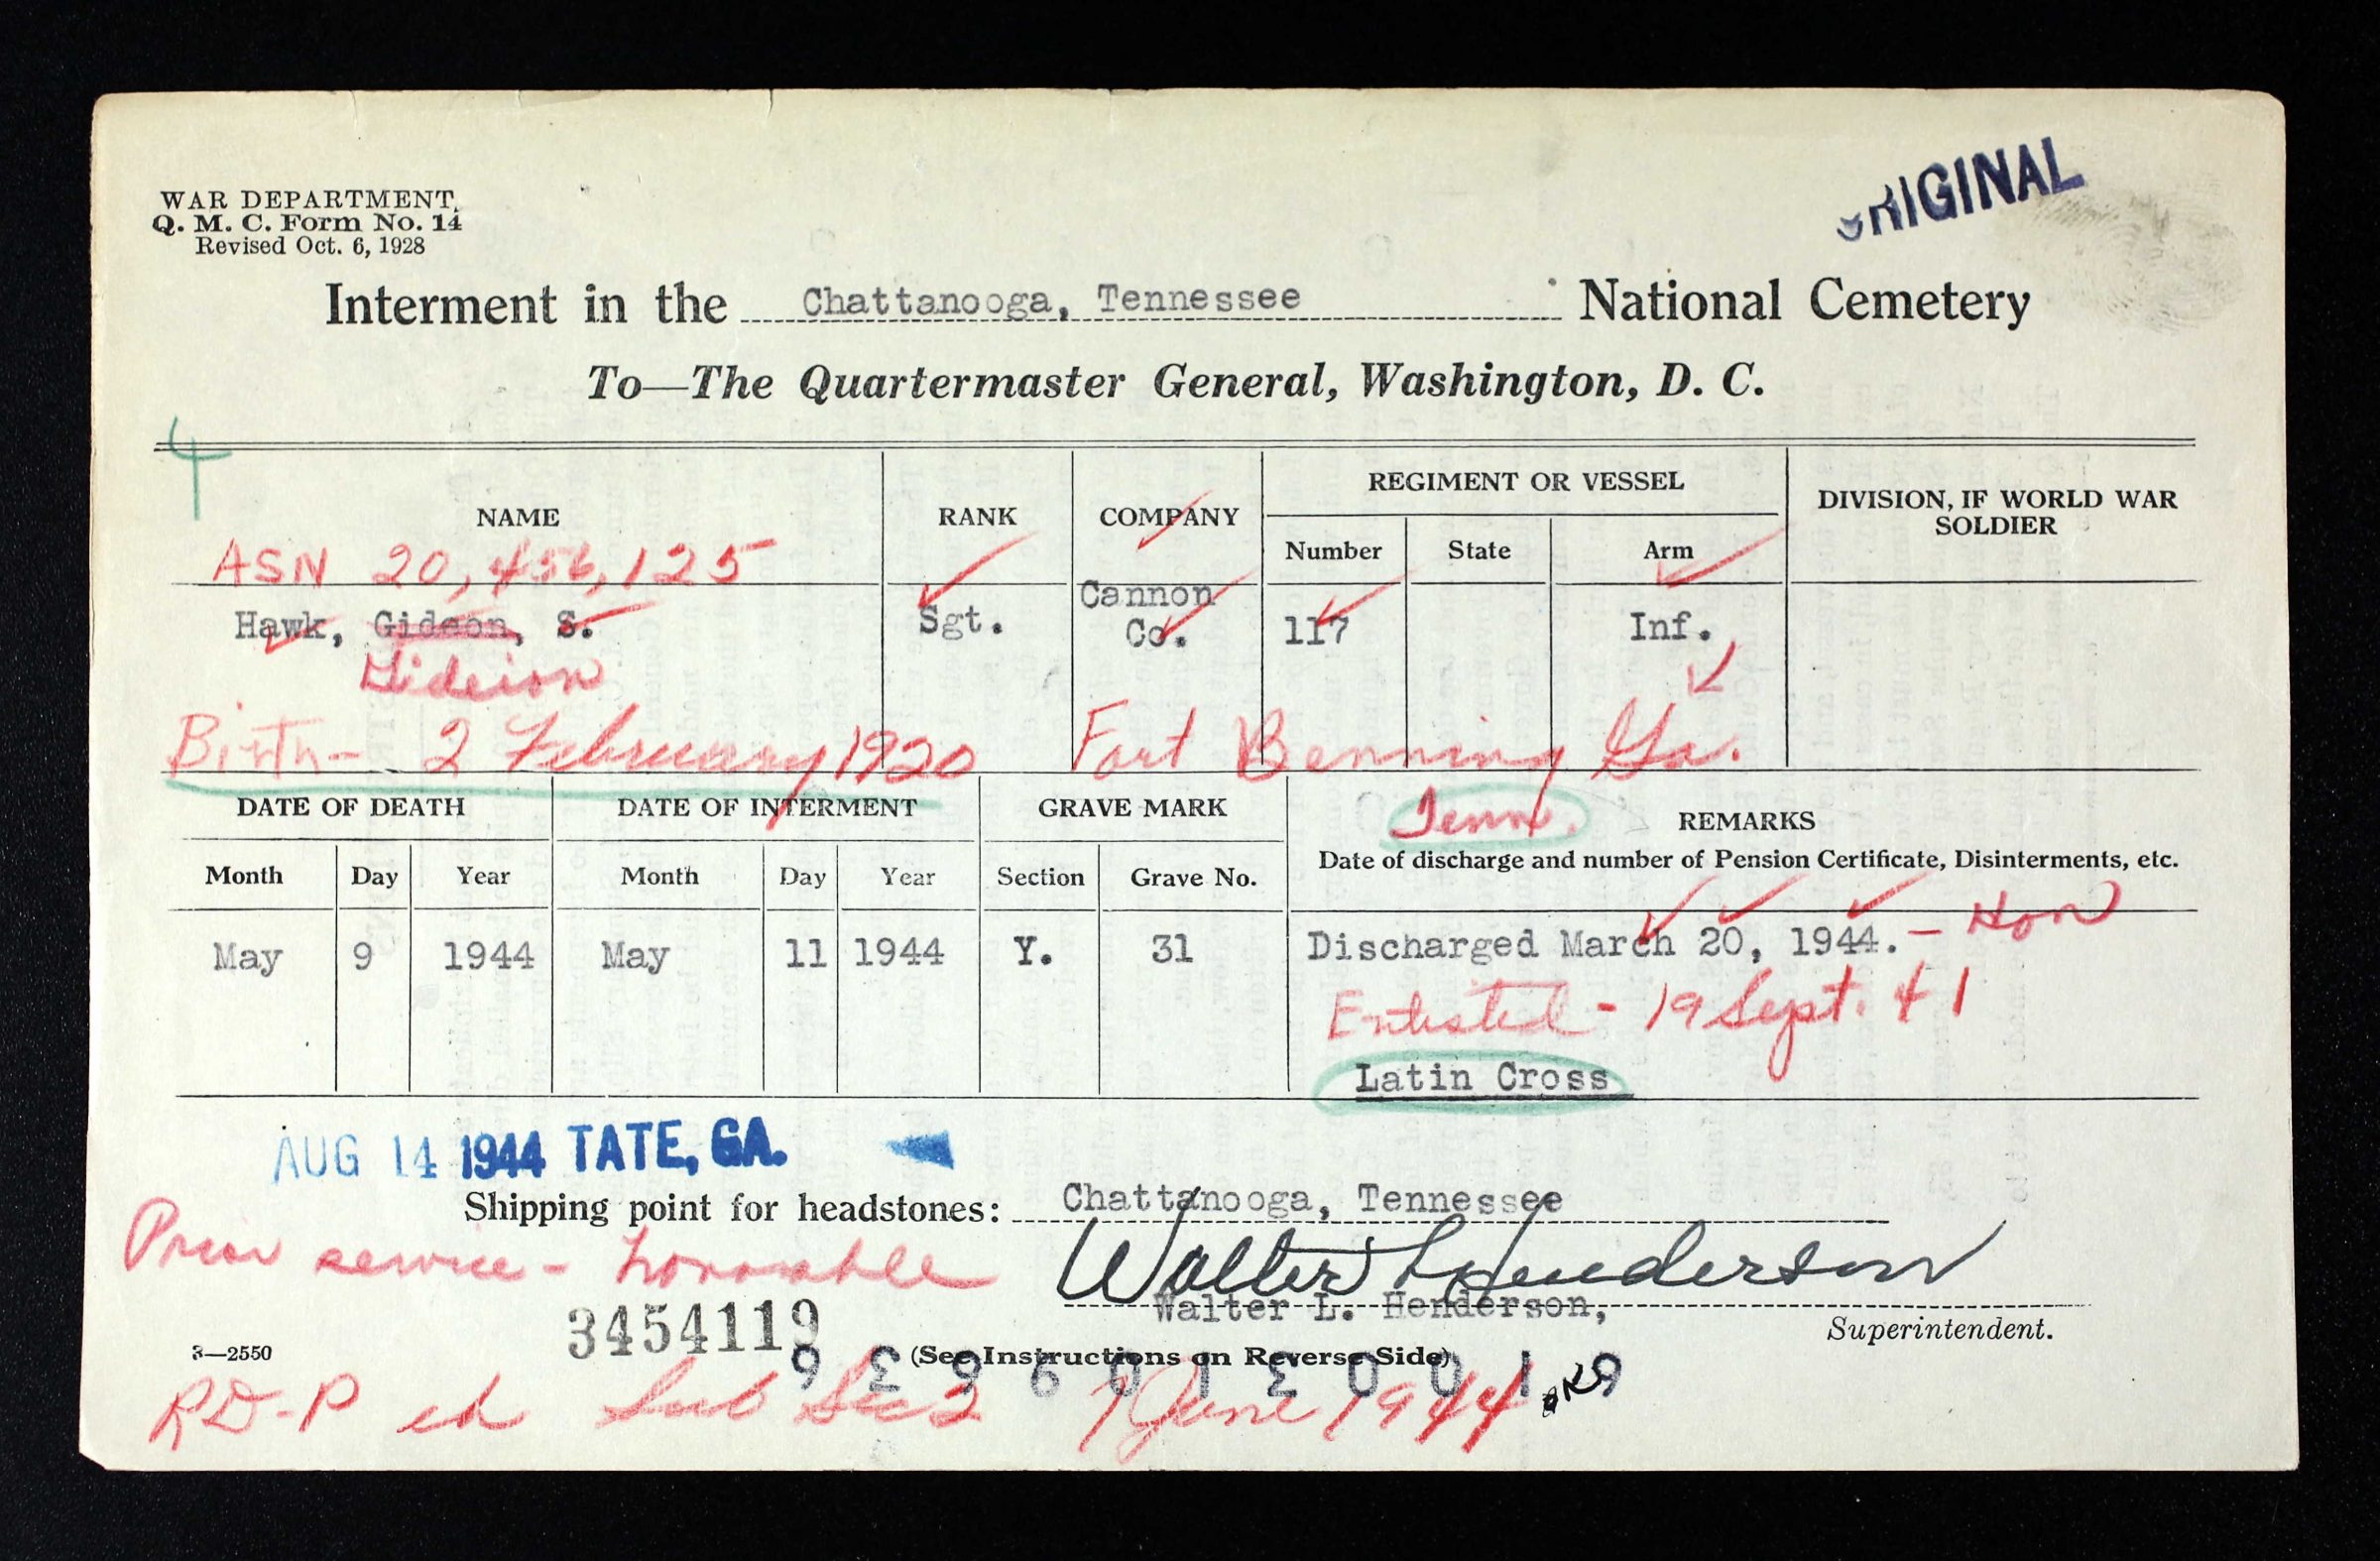 ORIGINAL
WAR DEPARTMENT,
Q. M. C. Form No. 14
Revised Oct. 6, 1928
Interment in the Chattanooga, Tennessee National Cemetery
To—The Quartermaster General, Washington, D. C.
4
NAME RANK COMPANY REGIMENT OR VESSEL DIVISION, IF WORLD WAR SOLDIER
Number State Arm
ASN 20,456,125
Hawk, Gideon, S. Sgt. Cannon Co. 117 Inf.
Gideion
Birth- 2 February 1920 Fort Benning Ga.
Tenn.
DATE OF DEATH DATE OF INTERMENT GRAVE MARK REMARKS
Date of discharge and number of Pension Certificate, Disinterments, etc.
Month Day Year Month Day Year Section Grave No.
May 9 1944 May 11 1944 Y. 31 Discharged March 20, 1944. - Hon
Enlisted - 19 Sept. 41
Latin Cross
AUG 14 1944 TATE, GA.
Shipping point for headstones: Chattanooga, Tennessee
Prior service - honorable
Walter L Henderson
Walter L. Henderson,
Superintendent.
3454119
3—2550
(See Instructions on Reverse Side)
RD-P ed Sub Sec 2 7 June 1944